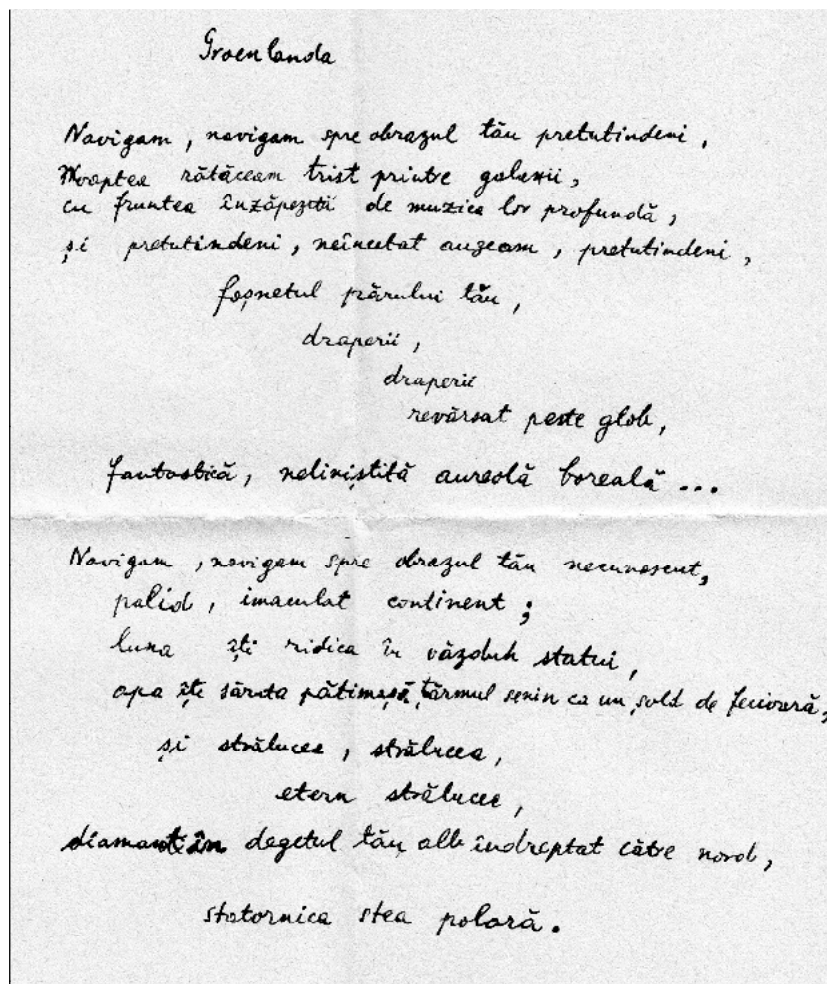 Groenlanda
Navigam, navigam spre obrazul tău pretutindeni,
Noaptea rătăceam trist printre galaxii,
cu fruntea înzăpezită de muzica lor profundă,
și pretutindeni, neîncetat auzeam, pretutindeni,
foșnetul părului tău,
draperii,
draperii
revărsat peste glob,
fantastică, neliniștită aureolă boreală...
Navigam, navigam spre obrazul tău necunoscut,
palid, imaculat continent;
luna îți ridica în văzduh statui,
apa îți săruta pătimașă, țărmul senin ca un șold de fecioară,
și strălucea, strălucea,
etern strălucea,
diamant în degetul tău alb îndreptat către nord,
statornica stea polară.